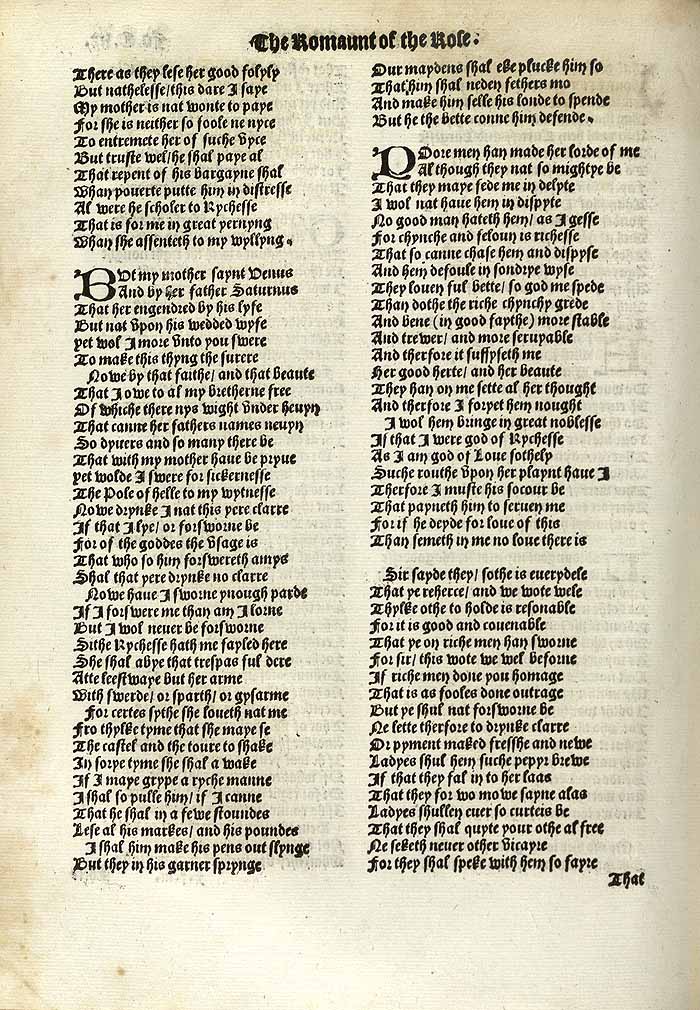 The Romaunt of the Rose.
There as they lese her good folyly
But nathelesse/ this dare I saye
My mother is nat wonte to paye
For she is neither so foole ne nyce
To entremete her of suche vyce
But truste wel/ he shal paye al
That repent of his bargayne shal
Whan pouerte putte him in distresse
Al were he scholer to Rychesse
That is for me in great yernyng
Whan she assenteth to my wyllyng.
BUt my mother saynt Venus
And by her father Saturnus
That her engendred by his lyfe
But nat vpon his wedded wyfe
yet wol I more vnto you swere
To make this thyng the surere
Nowe by that faithe/ and that beaute
That I owe to al my bretherne free
Of whiche there nys wight vnder heuyn
That canne her fathers names neuyn
So dyuers and so many there be
That with my mother haue be pryue
yet wolde I swere for sickernesse
The Pole of helle to my wytnesse
Nowe drynke I nat this yere clarre
If that I lye/ or forsworne be
For of the goddes the vsage is
That who so him forswereth amys
Shal that yere drynke no clarre
Nowe haue I sworne ynough parde
If I forswere me than am I lorne
But I wol neuer be forsworne
Sithe Rychesse hath me fayled here
She shal abye that trespas ful dere
Atte leestwaye but her arme
With swerde/ or sparth/ or gysarme
For certes sythe she loueth nat me
Fro thylke tyme that she maye se
The castel and the toure to shake
In sorye tyme she shal a wake
If I maye grype a ryche manne
I shal so pulle him/ if I canne
That he shal in a fewe stoundes
Lese al his markes/ and his poundes
I shal him make his pens out slynge
But they in his garner sprynge
Our maydens shal eke plucke him so
That him shal neden fethers mo
And make him selle his londe to spende
But he the bette conne him defende.
POore men han made her lorde of me
Al though they nat so mightye be
That they maye fede me in delyte
I wol nat haue hem in dispyte
No good man hateth hem/ as I gesse
For chynche and feloun is richesse
That so canne chase hem and dispyse
And hem defoule in sondrye wyse
They louen ful bette/ so god me spede
Than dothe the riche chynchy grede
And bene (in good faythe) more stable
And trewer/ and more seruyable
And therfore it suffyseth me
Her good herte/ and her beaute
They han on me sette al her thought
And therfore I foryet hem nought
I wol hem bringe in great noblesse
If that I were god of Rychesse
As I am god of Loue sothely
Suche routhe vpon her playnt haue I
Therfore I muste his socour be
That payneth him to seruen me
For if he deyde for loue of this
Than semeth in me no loue there is
Sir sayde they/ sothe is euerydele
That ye reherce/ and we wote wele
Thylke othe to holde is resonable
For it is good and couenable
That ye on riche men han sworne
For sir/ this wote we wel beforne
If riche men done you homage
That is as fooles done outrage
But ye shul nat forsworne be
Ne lette therfore to drynke clarre
Or pyment maked fresshe and newe
Ladyes shul hem suche pepyr brewe
If that they fal in to her laas
That they for wo mowe sayne alas
Ladyes shullen euer so curteis be
That they shal quyte your othe al free
Ne seketh neuer other vicayre
For they shal speke with hem so fayre
That